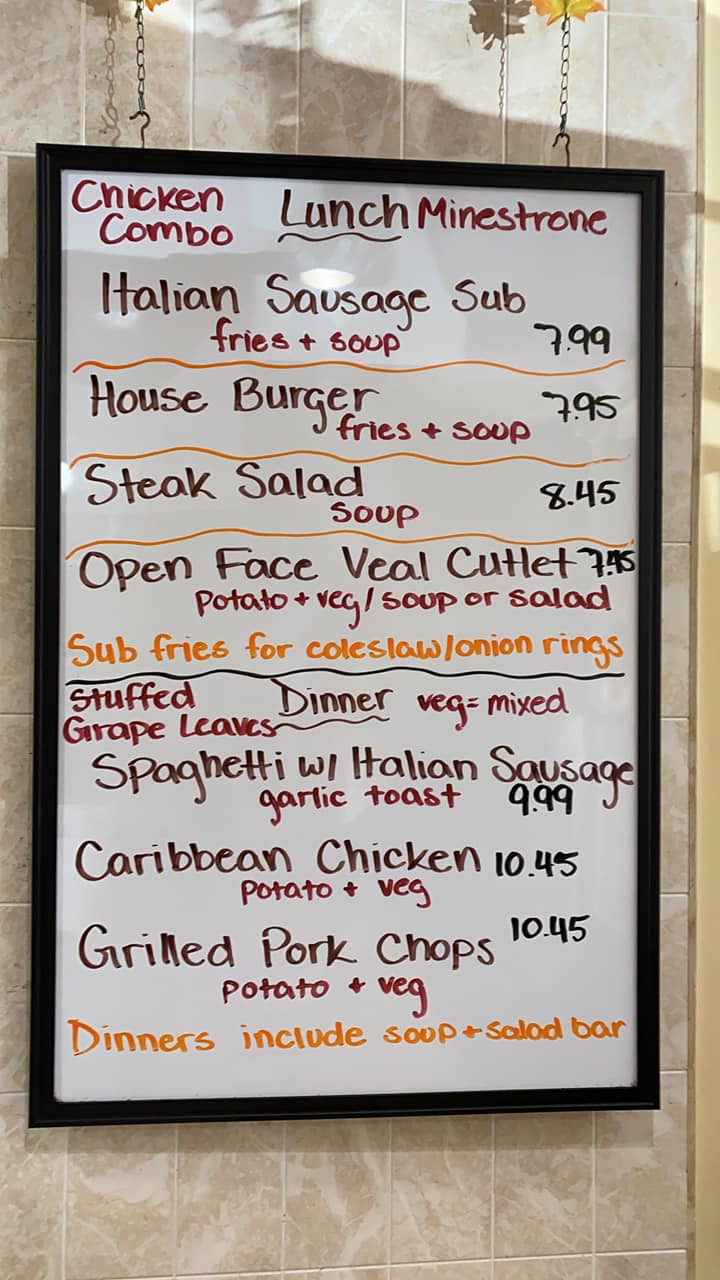 Chicken Combo Lunch Minestrone
Italian Sausage Sub
fries + soup 7.99
House Burger 7.95
fries + soup
Steak Salad 8.45
soup
Open Face Veal Cutlet
potato + veg / soup or salad
Sub fries for coleslaw/onion rings
Stuffed Grape Leaves Dinner veg= mixed
Spaghetti w/ Italian Sausage
garlic toast 9.99
Caribbean Chicken 10.45
potato + veg
Grilled Pork Chops 10.45
potato + veg
Dinners include soup + salad bar